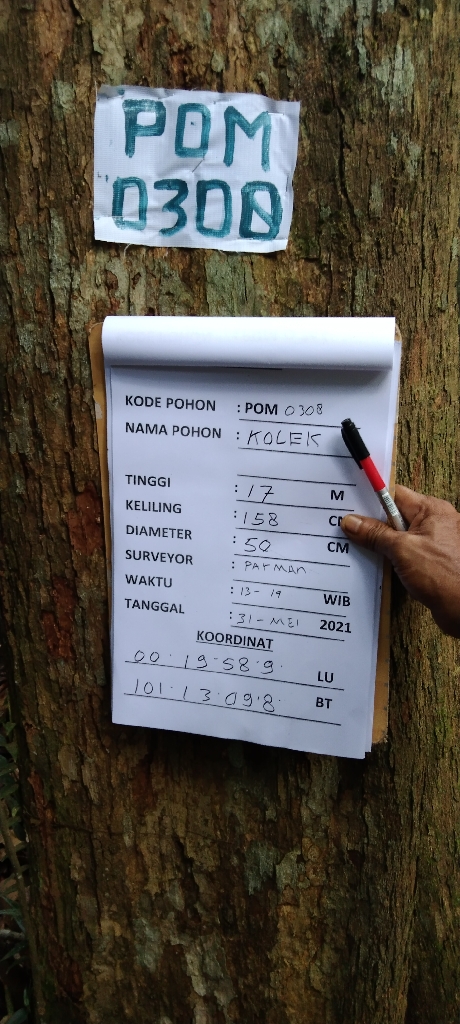 POM
0300
KODE POHON : POM 0308
NAMA POHON : KOLEK
TINGGI : 17 M
KELILING : 158 CM
DIAMETER : 50 CM
SURVEYOR : PATMAN
WAKTU : 13-19 WIB
TANGGAL : 31-MEI 2021
KOORDINAT
00.19.58.9. LU
101.13.09.8 BT